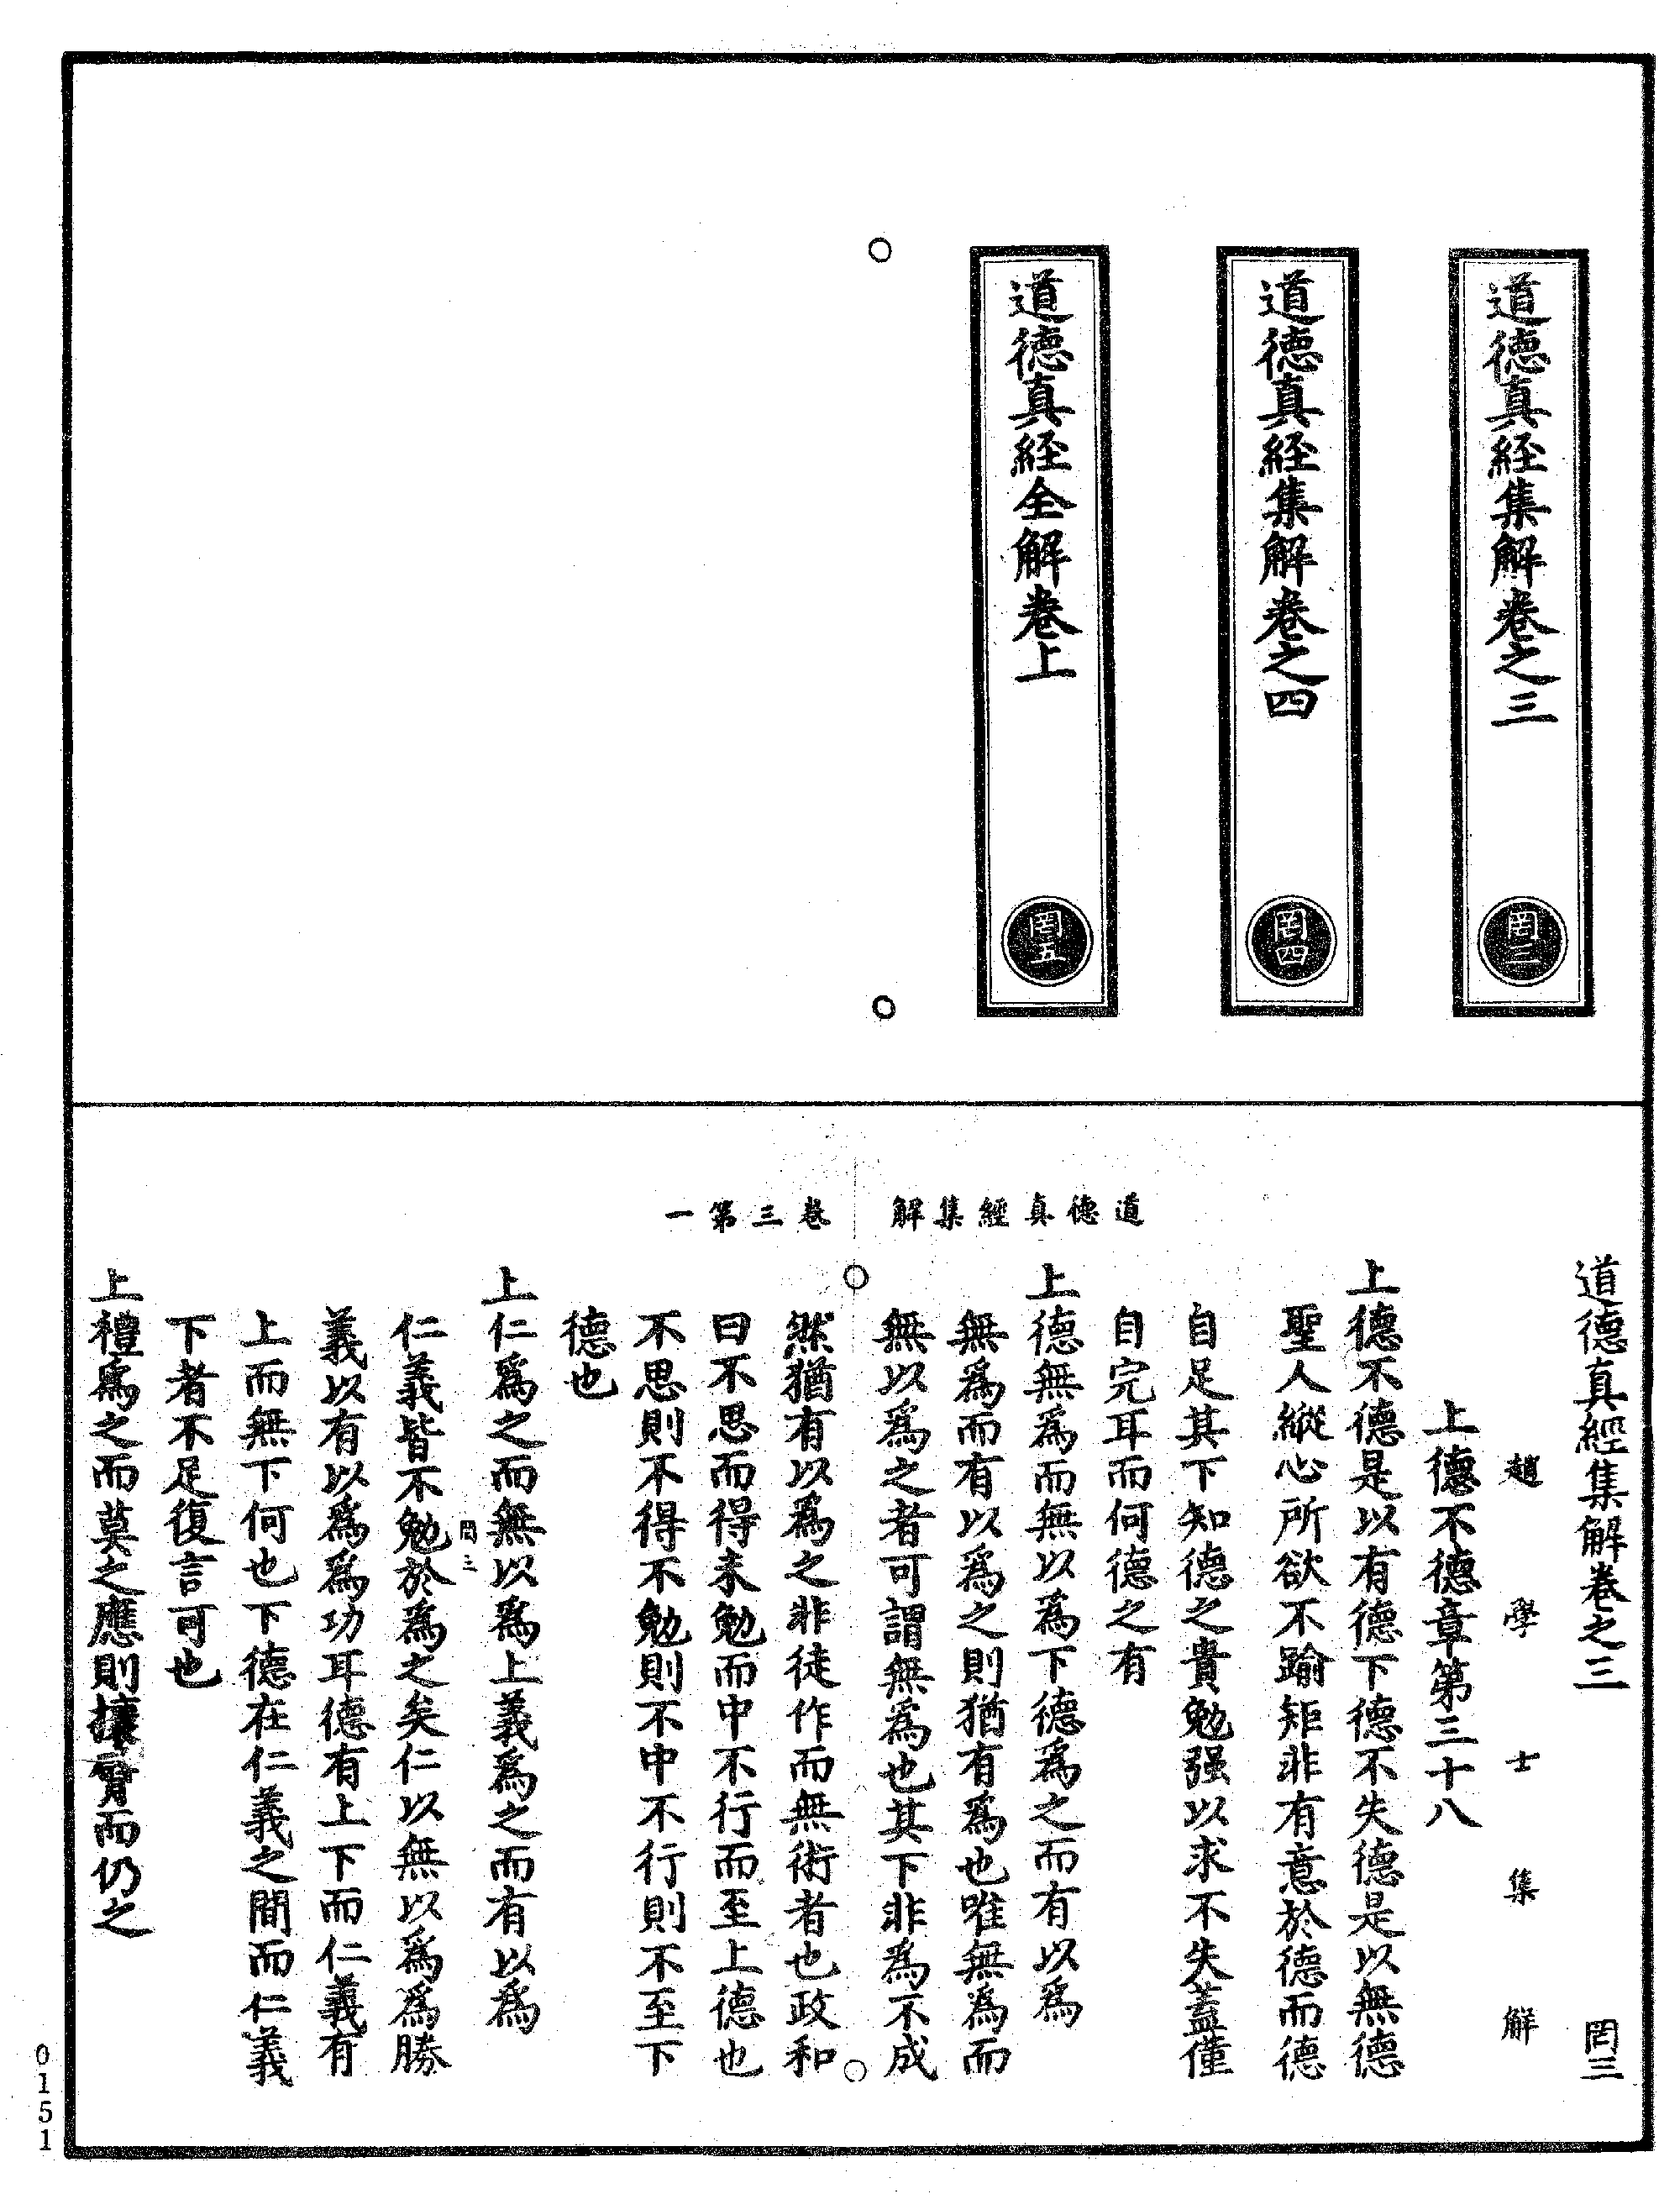 道德真経集解卷之三
罔三
道德真経集解卷之四
罔四
道德真経全解卷上
罔五
道德真經集解 卷三第一
道德真經集解卷之三 罔三
趙學士集解
上德不德章第三十八
上德不德是以有德下德不失德是以無德
聖人縱心所欲不踰矩非有意於德而德
自足其下知德之貴勉强以求不失蓋僅
自完耳而何德之有
上德無爲而無以爲下德爲之而有以爲
無爲而有以爲之則猶有爲也唯無爲而
無以爲之者可謂無爲也其下非爲不成
然猶有以爲之非徒作而無術者也政和
曰不思而得未勉而中不行而至上德也
不思則不得不勉則不中不行則不至下
德也
上仁爲之而無以爲上義爲之而有以爲
罔三
仁義皆不勉於爲之矣仁以無以爲爲勝
義以有以爲爲功耳德有上下而仁義有
上而無下何也下德在仁義之間而仁義
下者不足復言可也
上禮爲之而莫之應則攘臂而仍之
0151